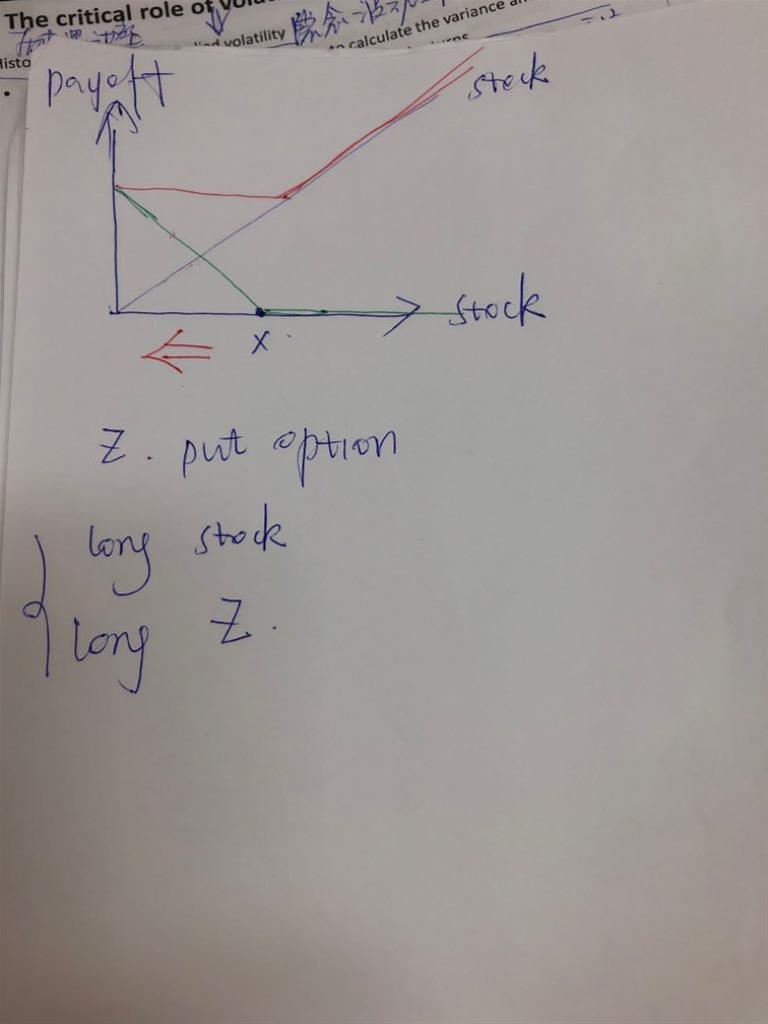 The critical role of
volatility 隐含波动
calculate the variance
Payoff
stock
stock
X
Z. put option
long stock
long Z.